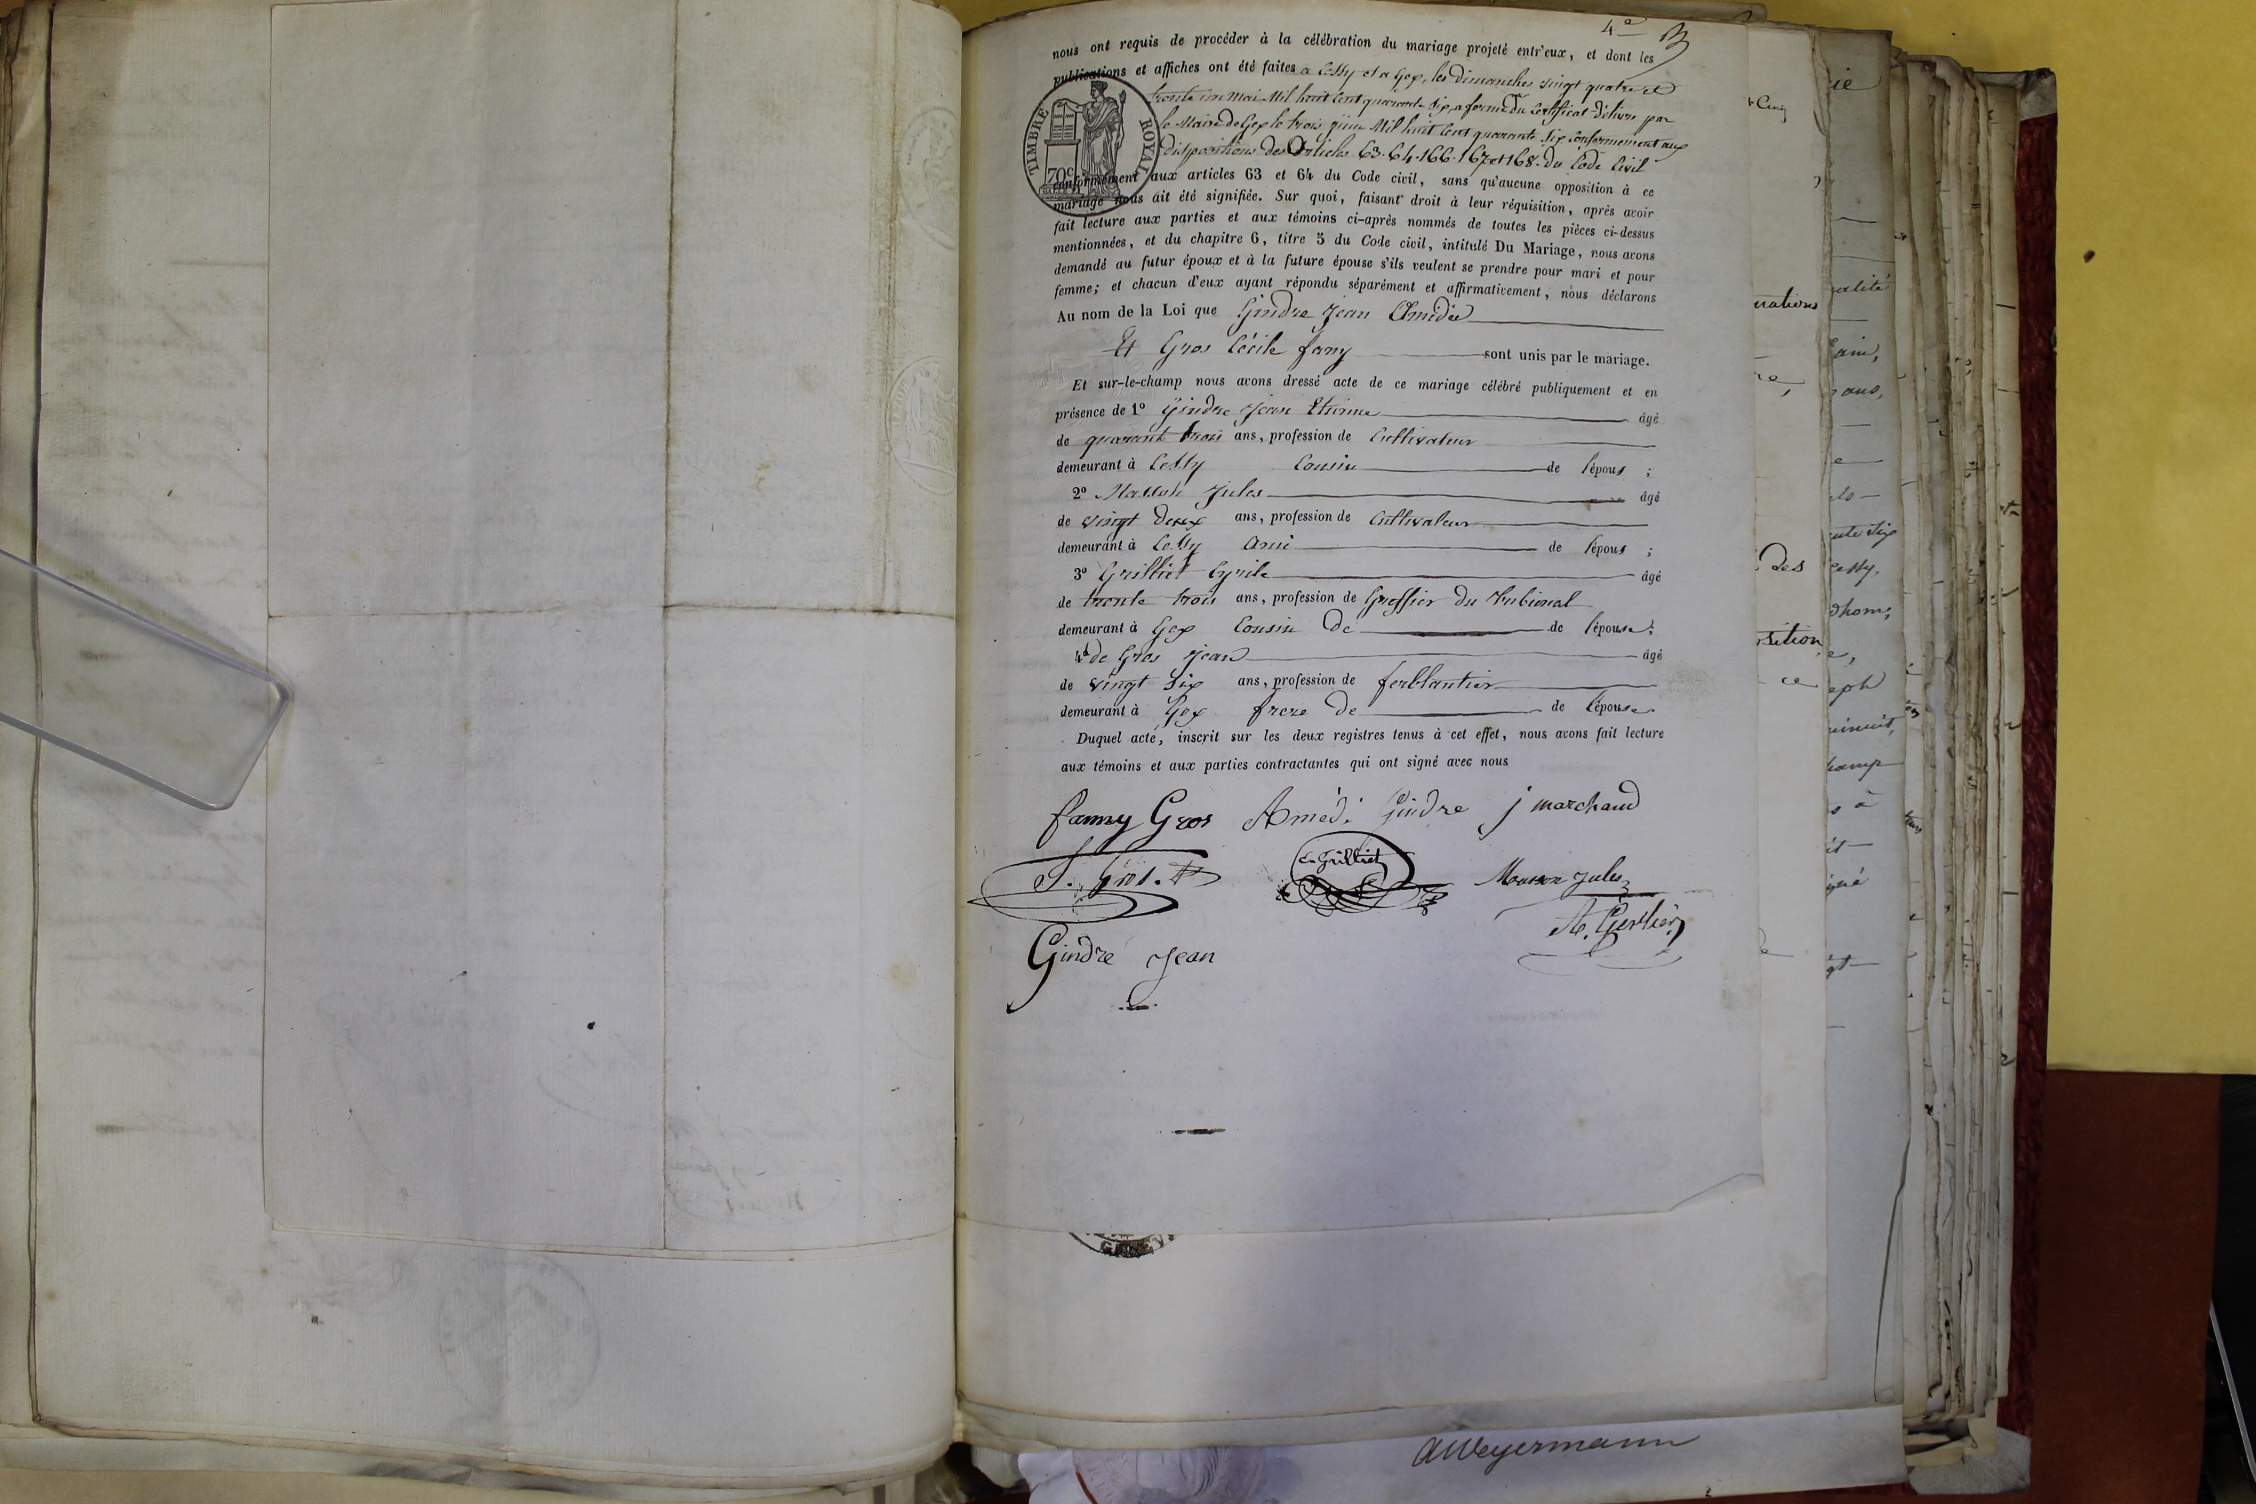 4e
nous ont requis de procéder à la célébration du mariage projeté entr'eux, et dont les
publications et affiches ont été faites a Cessy et a Gex, les dimanches vingt quatre et
trente un Mai Mil huit Cent quarante Six, a forme du Certificat délivré par
le Maire de Gex le trois juin Mil huit Cent quarante Six Conformement aux
dispositions des Articles 63. 64. 166. 167 et 168. du Code Civil
TIMBRE ROYAL
70c
conformément aux articles 63 et 64 du Code civil, sans qu'aucune opposition à ce
mariage nous ait été signifiée. Sur quoi, faisant droit à leur réquisition, après avoir
fait lecture aux parties et aux témoins ci-après nommés de toutes les pièces ci-dessus
mentionnées, et du chapitre 6, titre 5 du Code civil, intitulé Du Mariage, nous avons
demandé au futur époux et à la future épouse s'ils veulent se prendre pour mari et pour
femme; et chacun d'eux ayant répondu séparément et affirmativement, nous déclarons
Au nom de la Loi que Gindre Jean Amédée
Et Gros Cécile fany sont unis par le mariage.
Et sur-le-champ nous avons dressé acte de ce mariage célébré publiquement et en
présence de 1º Gindre Jean Etienne âgé
de quarant trois ans, profession de Cultivateur
demeurant à Cessy Cousin de l'époux ;
2º Masson Jules âgé
de vingt deux ans, profession de Cultivateur
demeurant à Cessy Ami de l'époux ;
3º Grilliet Cyrile âgé
de trente trois ans, profession de Greffier du Tribional
demeurant à Gex Cousin de de l'épouse ;
4º de Gros Jean âgé
de vingt Six ans, profession de ferblantier
demeurant à Gex frere de de l'épouse.
Duquel acte, inscrit sur les deux registres tenus à cet effet, nous avons fait lecture
aux témoins et aux parties contractantes qui ont signé avec nous
fanny Gros Amédé Gindre j marchand
J. Gros. C. Grilliet Masson Jules
A. Gerlier
Gindre Jean
AWeyermann